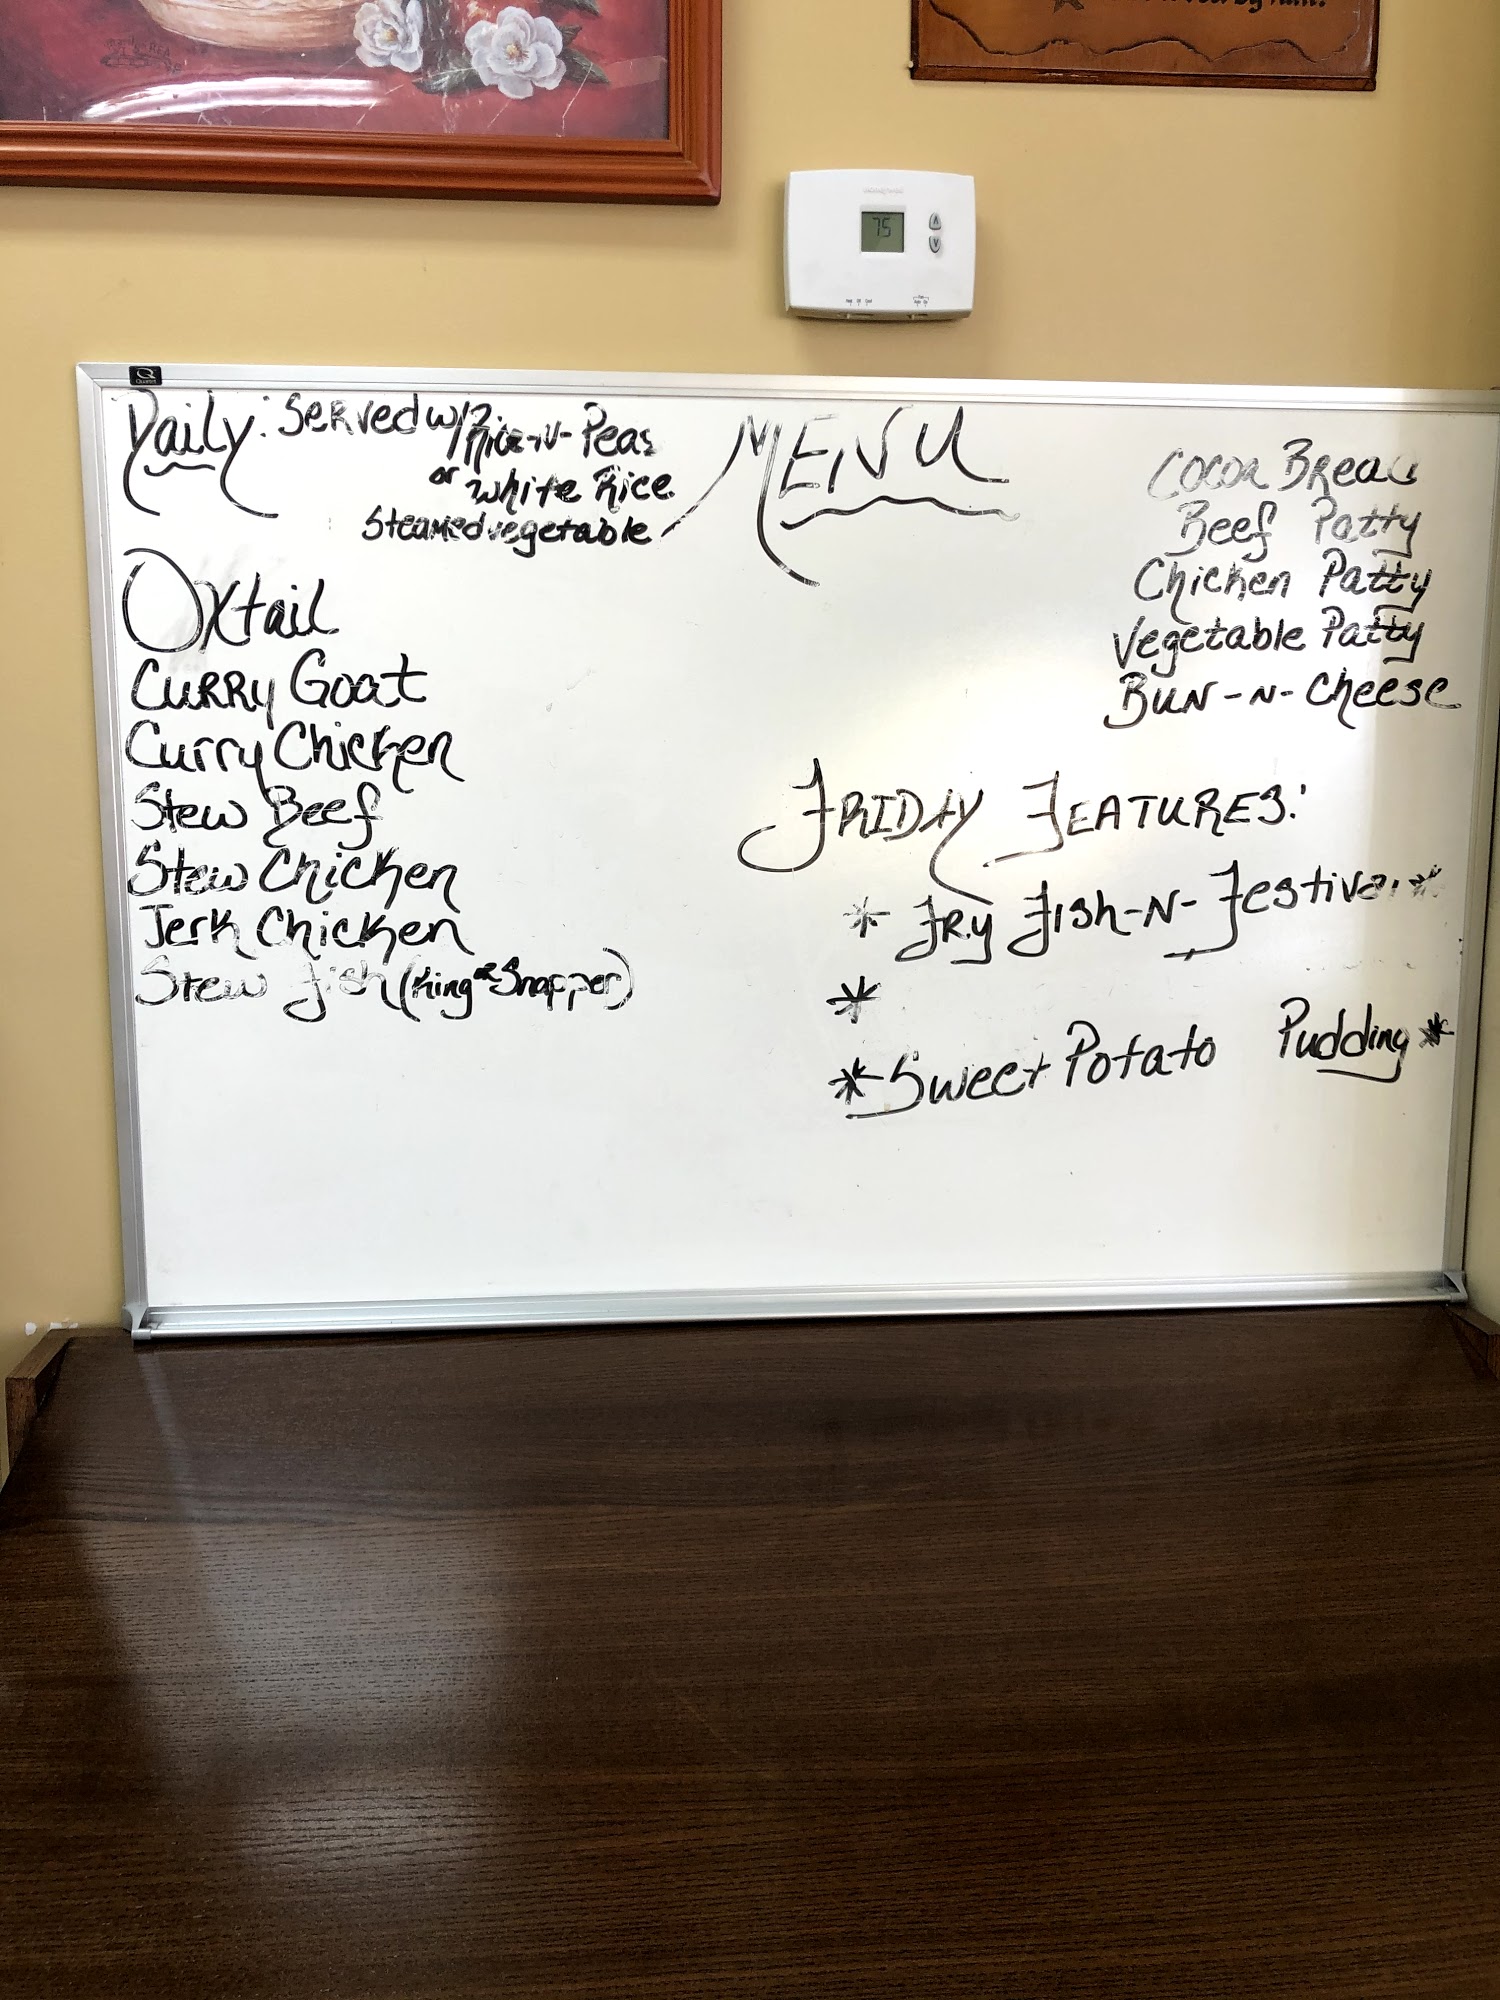 Honeywell
75
Quartet
Daily: Served w/ Rice-N-Peas
or White Rice
Steamed vegetable
MENU
Oxtail
Curry Goat
Curry Chicken
Stew Beef
Stew Chicken
Jerk Chicken
Stew Fish (King or Snapper)
Cocoa Bread
Beef Patty
Chicken Patty
Vegetable Patty
Bun-N-Cheese
FRIDAY FEATURES:
* Fry Fish-N-Festival *
*
* Sweet Potato Pudding *